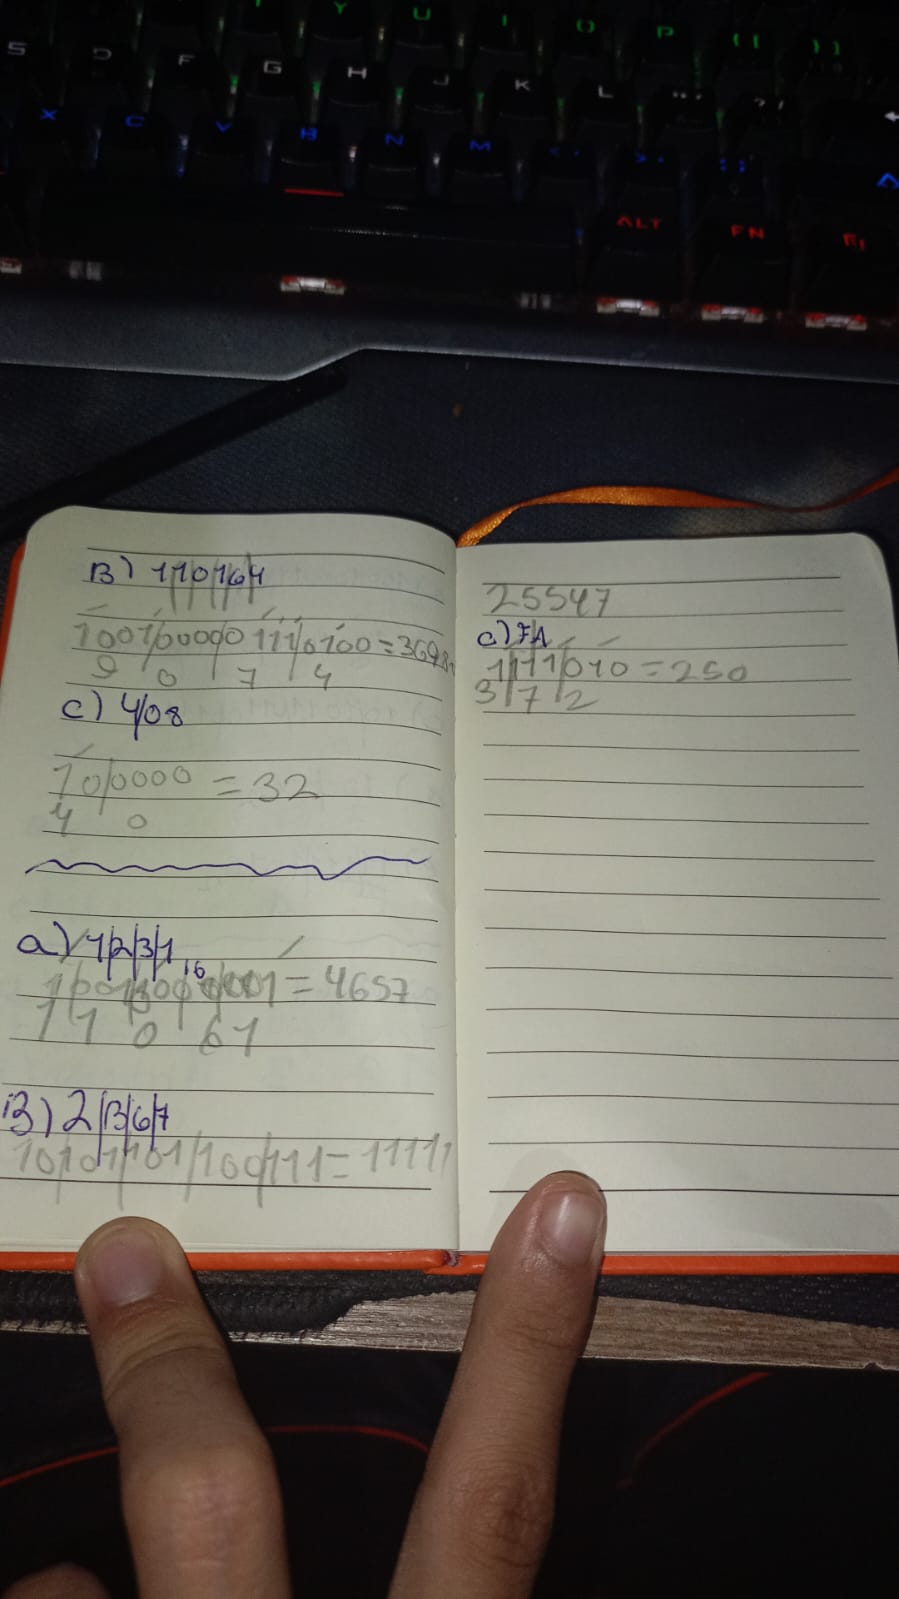 Y U I O P { [ } ]
S D F G H J K L "' ?/
X C V B N M <, >. :;
ALT FN
B) 110164
1001000001110100=3698
9 0 7 4
C) 408
100000 = 32
4 0
a) 1231
16
= 4657
1 1 0 61
B) 2B67
10101101100111=11111
25547
C) FA
11111010=250
3 7 2